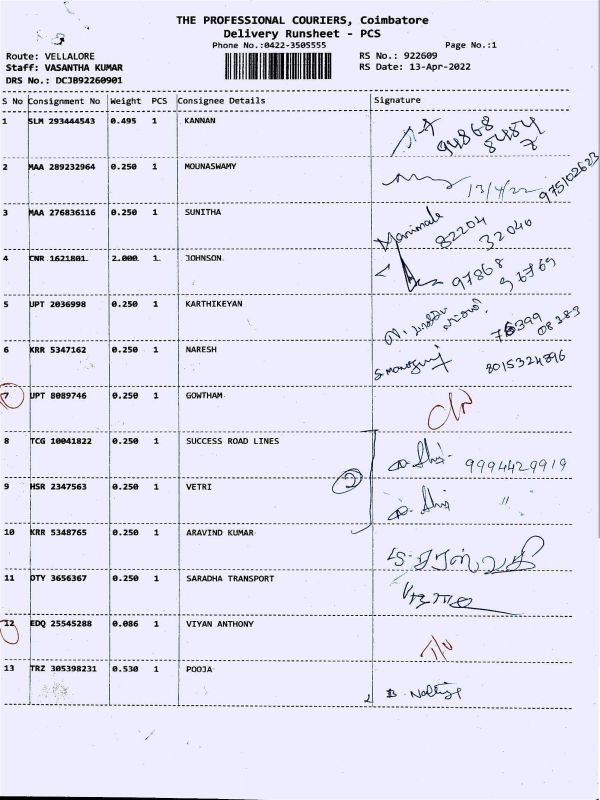 THE PROFESSIONAL COURIERS, Coimbatore
Delivery Runsheet - PCS
Phone No.:0422-3505555 Page No.:1
Route: VELLALORE RS No.: 922609
Staff: VASANTHA KUMAR RS Date: 13-Apr-2022
DRS No.: DCJB92260901
S No Consignment No Weight PCS Consignee Details Signature
1 SLM 293444543 0.495 1 KANNAN 94868
8484
7
2 MAA 289232964 0.250 1 MOUNASWAMY 13/4/22 975102623
3 MAA 276836116 0.250 1 SUNITHA Manimala 82204
32040
4 CNR 1621801 2.000 1 JOHNSON 97868
96769
5 UPT 2036998 0.250 1 KARTHIKEYAN 76399
08383
6 KRR 5347162 0.250 1 NARESH 8015324896
7 UPT 8089746 0.250 1 GOWTHAM
8 TCG 10041822 0.250 1 SUCCESS ROAD LINES 9994429919
9 HSR 2347563 0.250 1 VETRI 2 "
10 KRR 5348765 0.250 1 ARAVIND KUMAR
11 OTY 3656367 0.250 1 SARADHA TRANSPORT
12 EDQ 25545288 0.086 1 VIYAN ANTHONY
13 TRZ 305398231 0.530 1 POOJA